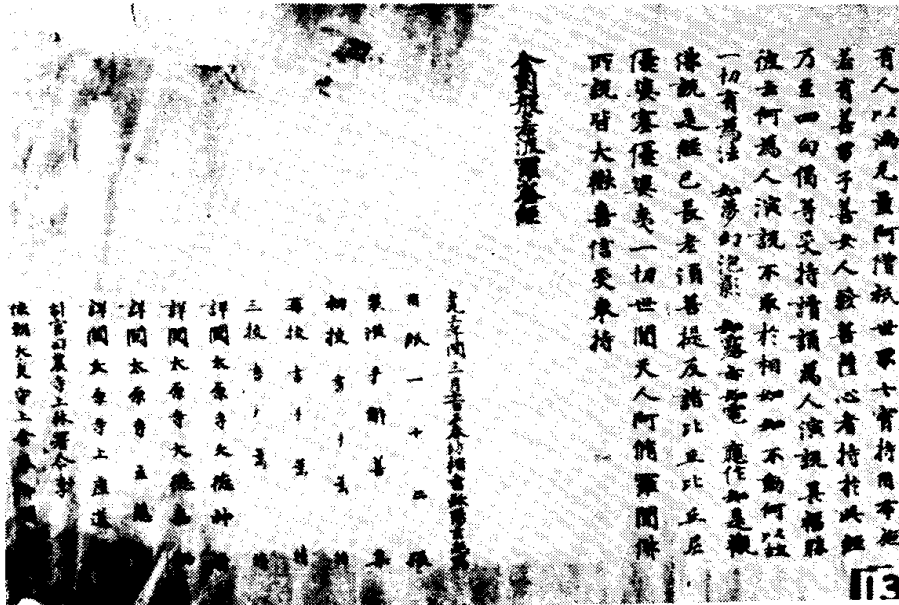 有人以滿无量阿僧祇世界七寶持用布施
若有善男子善女人發菩薩心者持於此經
乃至四句偈等受持讀誦為人演說其福勝
彼云何為人演說不取於相如如不動何以故
一切有為法 如夢幻泡影 如露亦如電 應作如是觀
佛說是經已長老須菩提及諸比丘比丘尼
優婆塞優婆夷一切世間天人阿脩羅聞佛
所說皆大歡喜信受奉持
金剛般若波羅蜜經
元年閏三月左春坊楷書歐陽玄
用紙一十二張
裝潢手解善集
初校書手
再校書手
三校書手
詳閱太原寺大德神
詳閱太原寺大德嘉
詳閱太原寺主慧
詳閱太原寺上座道
判官司農寺上林署令李
使朝大夫守上舍奉
13